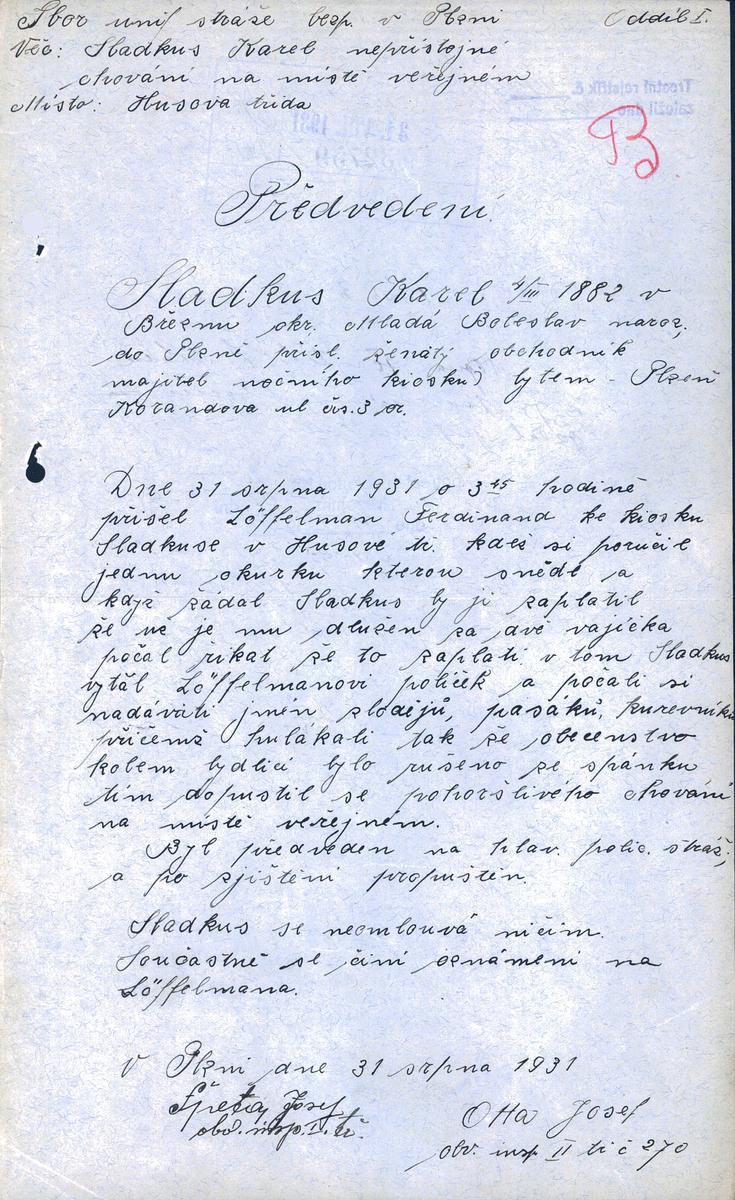 Sbor unif stráže bezp. v Plzni Oddíl I.
Věc: Sladkus Karel nepřístojné
chování na místě veřejném
Místo: Husova třída
Předvedení.
Sladkus Karel 4/III 1882 v
Březnu okr. Mladá Boleslav naroz,
do Plzně přísl. ženatý obchodník
majitel nočního kiosku) bytem - Plzeň
Korandova ul čís. 3 
Dne 31 srpna 1931 o 3 45 hodině
přišel Löffelman Ferdinand ke kiosku
Sladkuse v Husově tř. kdež si poručil
jednu okurku kterou snědl a
když žádal Sladkus by ji zaplatil
že už je mu dlužen za dvě vajíčka
počal říkat že to zaplatí v tom Sladkus
vytál Löffelmanovi políček a počali si
nadávati jmén zlodějů, pasáků, kurevníků
přičemž hulákali tak že obecenstvo
kolem bydlící bylo rušeno ze spánku
tím dopustil se pohoršlivého chování
na místě veřejném.
Byl předveden na hlav. polic. stráž,
a po zjištění propuštěn.
Sladkus se neomlouvá ničím.
Součastně se činí oznámení na
Löffelmana.
V Plzni dne 31 srpna 1931
Josef Otta Josef
obv. insp. I. tř. obv. insp II tř č 270